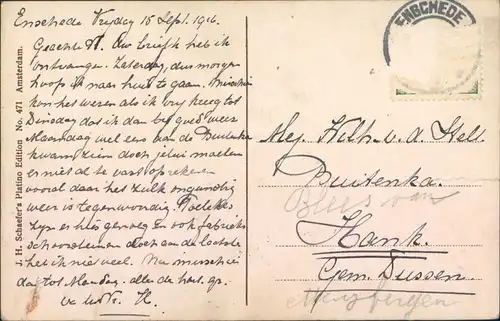 Enschede Vrijdag 15 Sept. 1916.
Geachte H. Uw brief heb ik
ontvangen. Zaterdag, dus morgen
hoop ik naar huis te gaan. Misschien
kon het wezen als ik vrij kreeg tot
Dinsdag dat ik dan bij goed weer
Maandag wel eens aan de Buitenka
kwam zien doch jelui moeten
er niet al te vast op rekenen
vooral daar het zulk ongunstig
weer is tegenwoordig.
zijn er hier genoeg en ook fabrieks
schoorsteenen doch aan de laatste
heb ik niet veel. Nu misschien
dus tot Maandag. allen de
H.
J. H. Schaefer's Platino Edition No. 471 Amsterdam.
ENSCHEDE
Mej. Wilh. v. d. Stel.
Buitenka.
Hank.
Gem. Dussen